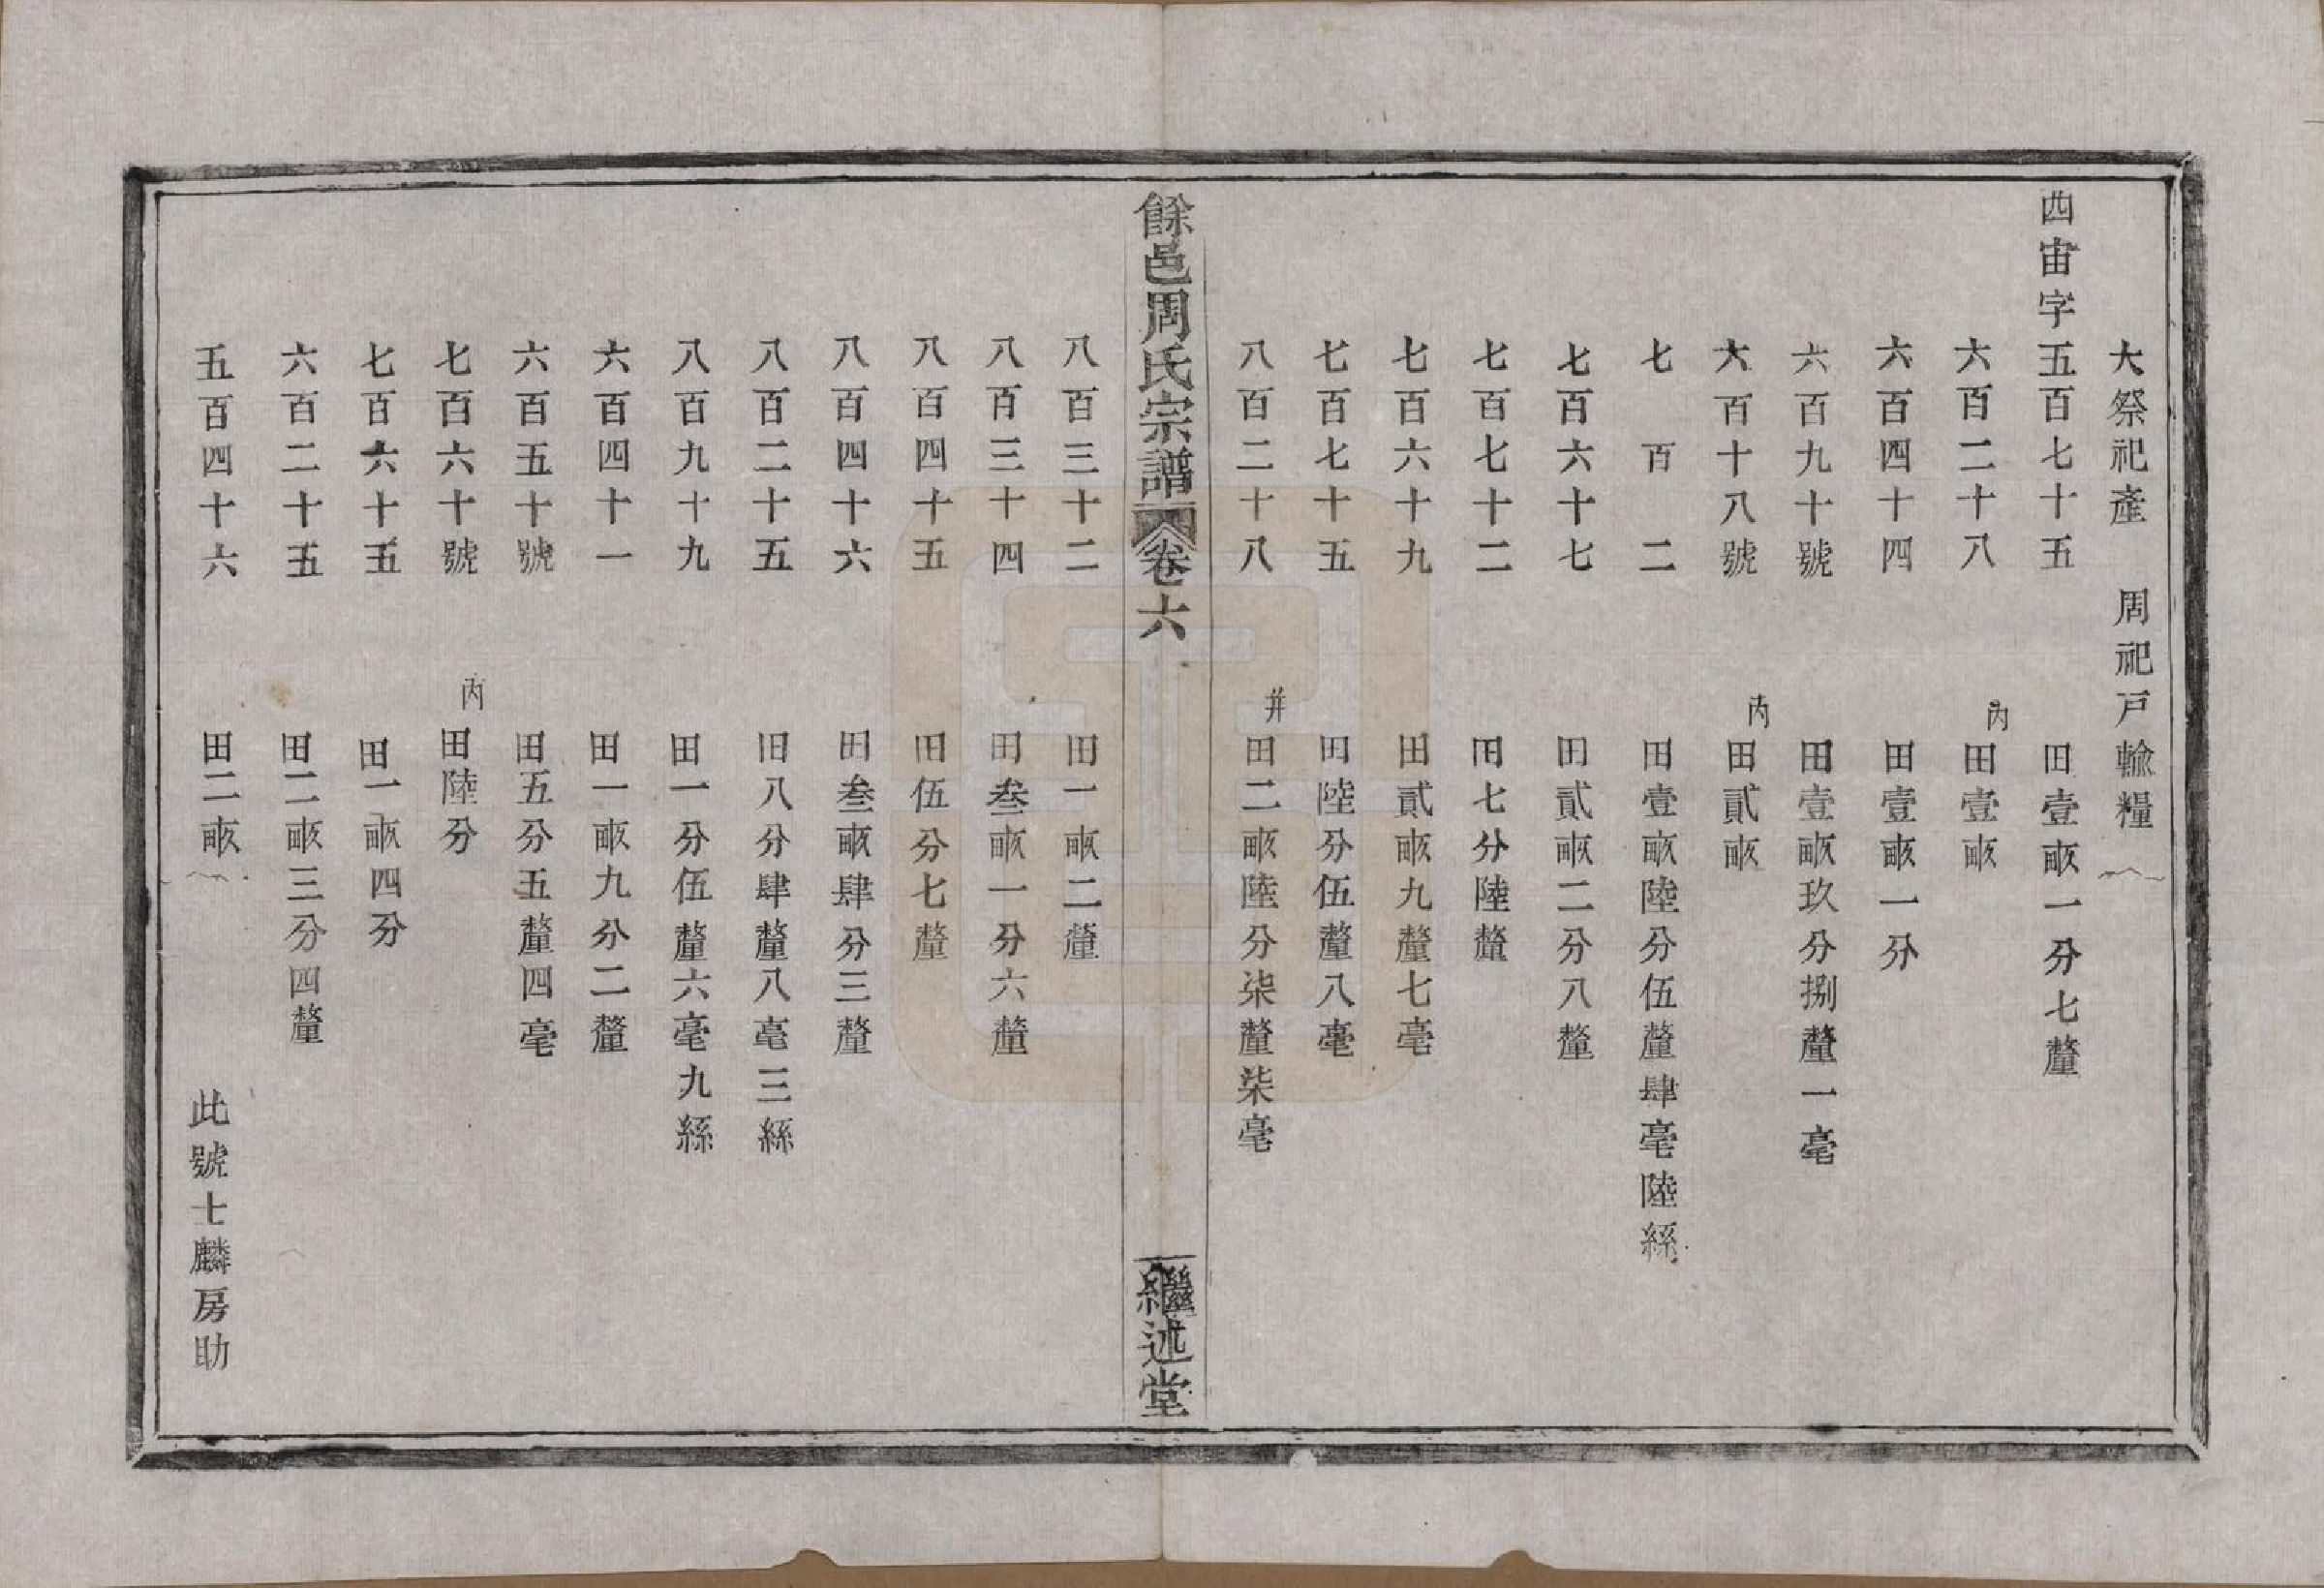 大祭祀產　周祀戸輸糧
西宙字五百七十五　田壹畞一分七釐
六百二十八　内田壹畞
六百四十四　田壹畞一分
六百九十號　田壹畞玖分捌釐一毫
六百十八號　内田貳畞
七百二　田壹畞陸分伍釐肆毫陸絲
七百六十七　田貳畞二分八釐
七百七十二　田七分陸釐
七百六十九　田貳畞九釐七毫
七百七十五　田陸分伍釐八毫
八百二十八　井田二畞陸分柒釐柒毫
餘邑周氏宗譜　卷六　繼述堂
八百三十二　田一畞二釐
八百三十四　田叁畞一分六釐
八百四十五　田伍分七釐
八百四十六　田叁畞肆分三釐
八百二十五　田八分肆釐八毫三絲
八百九十九　田一分伍釐六毫九絲
六百四十一　田一畞九分二釐
六百五十號　田五分五釐四毫
七百六十號　内田陸分
七百六十五　田一畞四分
六百二十五　田二畞三分四釐
五百四十六　田二畞　此號士麟房助